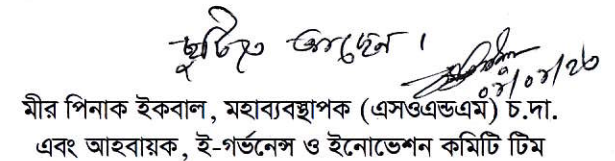 ছুটিতে আছেন।
০৮/০৮/২৩
মীর পিনাক ইকবাল, মহাব্যবস্থাপক (এসওএন্ডএম) চ.দা.
এবং আহবায়ক, ই-গর্ভনেন্স ও ইনোভেশন কমিটি টিম